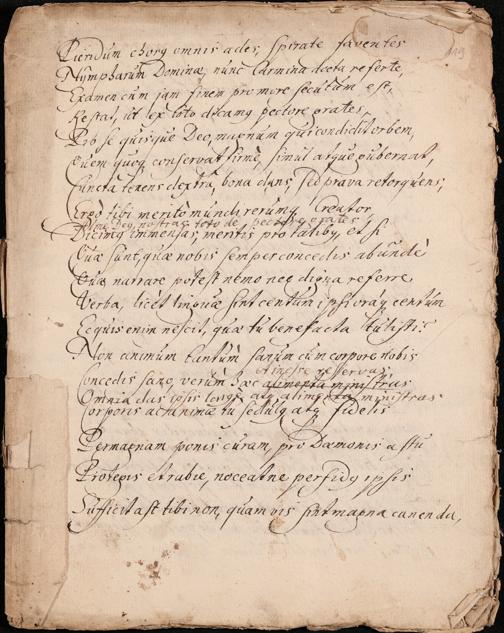 113
Pieridum chorq omnis ades, spirate faventes
Nympharum Dominæ, nunc Carmina docta referte,
Examen cum jam finem pro more secutum est,
Restat, ut ex toto dicamq pectore grates,
Pro se quisque Deo, magnum qui condidit orbem,
Quem quoq conservat firmè, simul atque gubernat,
Cuncta tenens dextrâ, bona dans, sed prava retorquens,
Ergo tibi meritò mundi rerumq Creator
Deo nostras toto de pectore grates
Dicimq immensas, meritis pro talibq, et si
Quæ sunt, quæ nobis semper concedis abundè
Quæ narrare potest nemo nec digna referre
Verba, licet linguæ sint centum ipsi oraq centum
Ecquis enim nescit, quæ tu benefacta
Non animum tantùm sanum cum corpore nobis
et inesse reservas
Concedis sano, verùm hæc alimenta ministras
Omnia das ipsis atq alimenta ministras
Corporis ac animæ tu sedulq atq fidelis
Permagnam ponis curam, pro Dæmonis astu
Protegis et rabie, noceat ne perfidq ipsis
Sufficit ast tibi non, quamvis sint magna canenda,